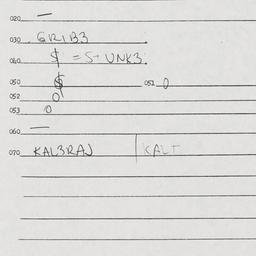 020 —
030 GRIB3
040 $ = S+ UNK3.
050 $ 051 0
052 0
053 0
060 —
070 KAL3RAJ KALT